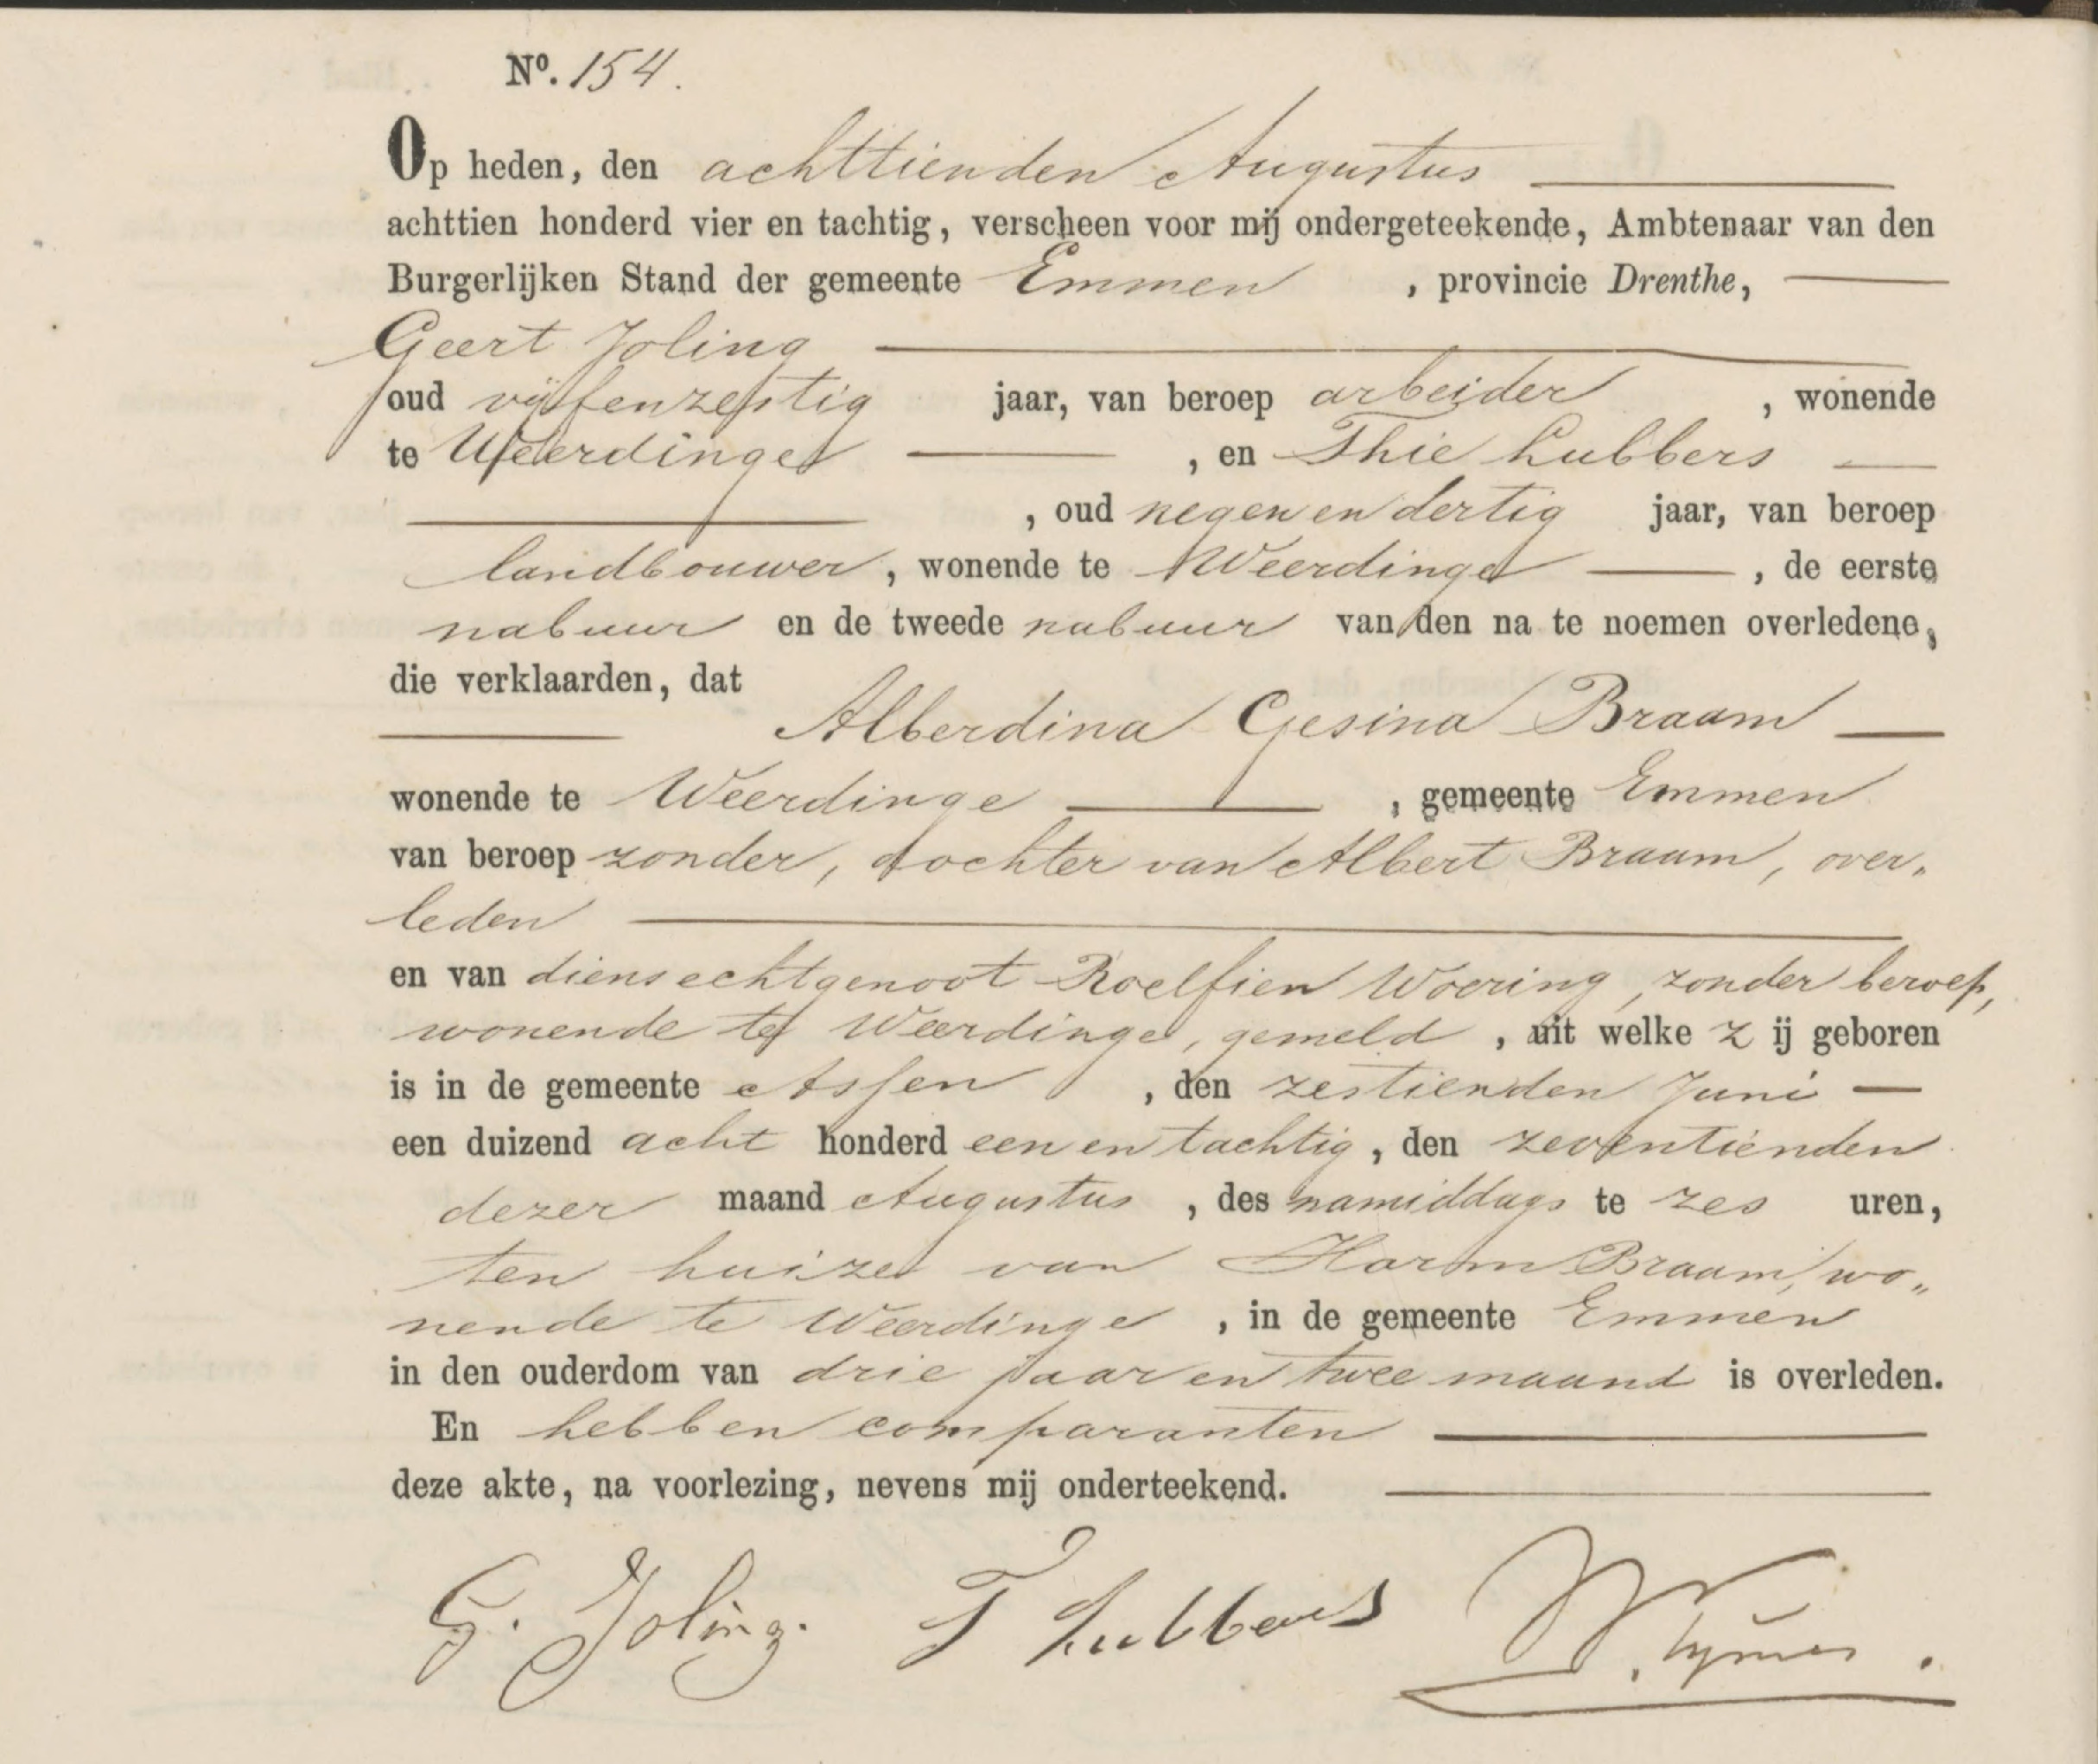 Nº. 154.
Op heden, den achttienden Augustus
achttien honderd vier en tachtig, verscheen voor mij ondergeteekende, Ambtenaar van den
Burgerlijken Stand der gemeente Emmen, provincie Drenthe,
Geert Joling
oud vijfenzestig jaar, van beroep arbeider, wonende
te Weerdinge, en Thie Lubbers
, oud negen en dertig jaar, van beroep
landbouwer, wonende te Weerdinge, de eerste
nabuur en de tweede nabuur van den na te noemen overledene,
die verklaarden, dat
Alberdina Gesina Braam
wonende te Weerdinge, gemeente Emmen
van beroep zonder, dochter van Albert Braam, over„
leden
en van diens echtgenoot Roelfien Woering, zonder beroep,
wonende te Weerdinge, gemeld, uit welke zij geboren
is in de gemeente Assen, den zestienden Juni
een duizend acht honderd een en tachtig, den zeventienden
dezer maand Augustus, des namiddags te zes uren,
ten huize van Harm Braam, wo„
nende te Weerdinge, in de gemeente Emmen
in den ouderdom van drie jaar en twee maand is overleden.
En hebben comparanten
deze akte, na voorlezing, nevens mij onderteekend.
G. Joling. T Lubbers